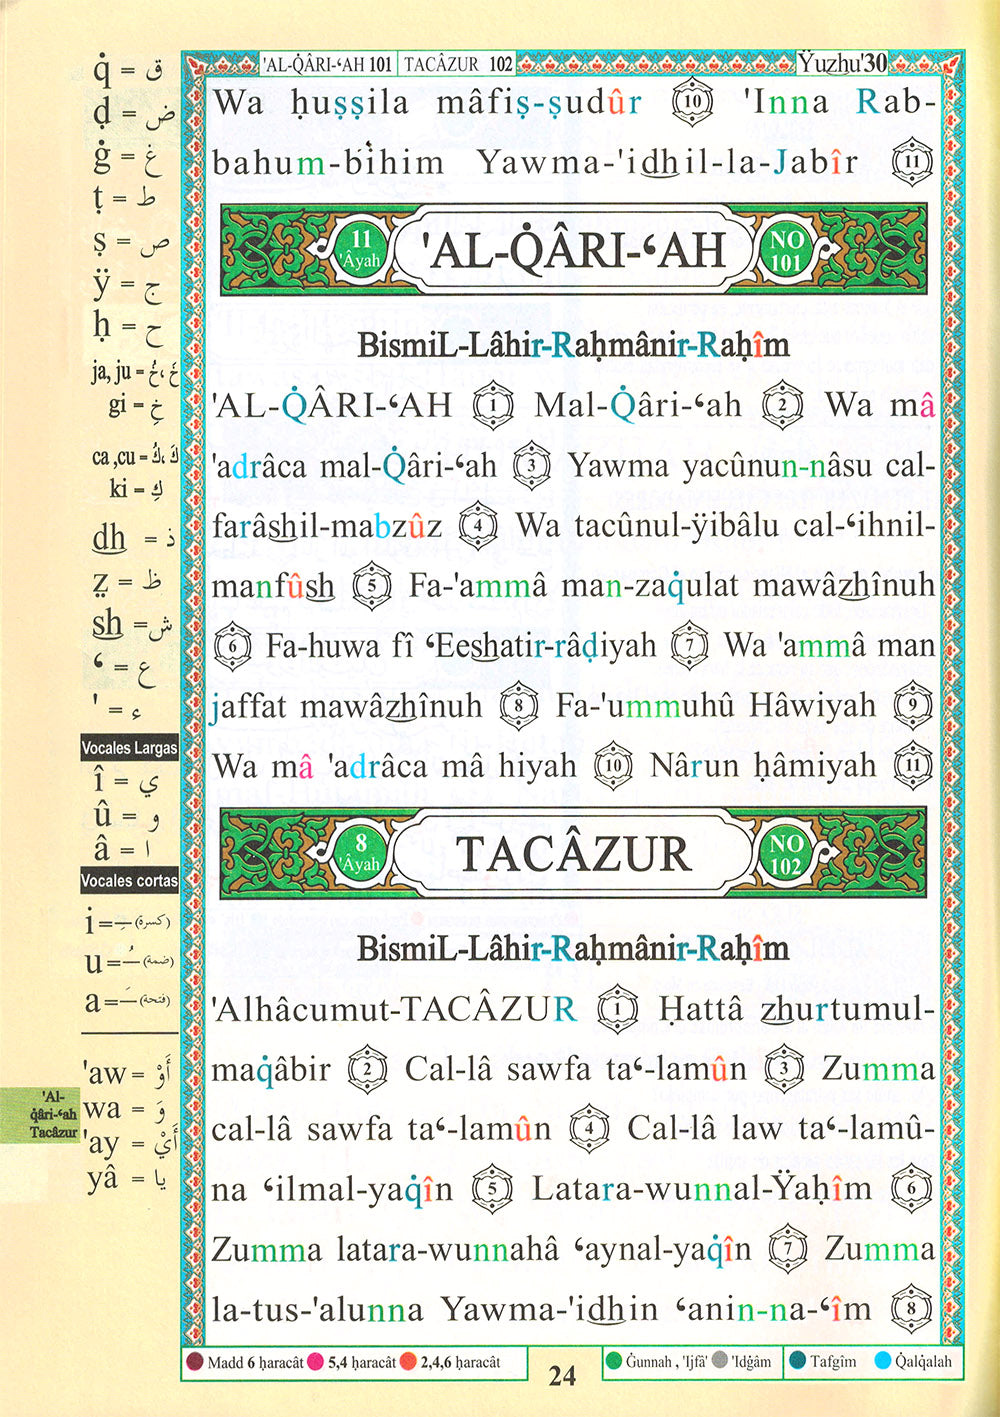 'AL-Q̇ÂRI-‘AH 101 TACÂZUR 102 Ÿuzhu'30
Wa ḥuṣṣila mâfiṣ-ṣudûr 10 'Inna Rab-
bahum-bihim Yawma-'idhil-la-Jabîr 11
11 'Âyah 'AL-Q̇ÂRI-‘AH NO 101
BismiL-Lâhir-Raḥmânir-Raḥîm
'AL-Q̇ÂRI-‘AH 1 Mal-Q̇âri-‘ah 2 Wa mâ
'adrâca mal-Q̇âri-‘ah 3 Yawma yacûnun-nâsu cal-
farâshil-mabzûz 4 Wa tacûnul-ÿibâlu cal-‘ihnil-
manfûsh 5 Fa-'ammâ man-zaq̇ulat mawâzhînuh
6 Fa-huwa fî ‘Eeshatir-râḍiyah 7 Wa 'ammâ man
jaffat mawâzhînuh 8 Fa-'ummuhû Hâwiyah 9
Wa mâ 'adrâca mâ hiyah 10 Nârun ḥâmiyah 11
8 'Âyah TACÂZUR NO 102
BismiL-Lâhir-Raḥmânir-Raḥîm
'Alhâcumut-TACÂZUR 1 Ḥattâ zhurtumul-
maq̇âbir 2 Cal-lâ sawfa ta‘-lamûn 3 Zumma
cal-lâ sawfa ta‘-lamûn 4 Cal-lâ law ta‘-lamû-
na ‘ilmal-yaq̇în 5 Latara-wunnal-Ÿaḥîm 6
Zumma latara-wunnahâ ‘aynal-yaq̇în 7 Zumma
la-tus-'alunna Yawma-'idhin ‘anin-na-‘îm 8
q̇ = ق
ḍ = ض
ġ = غ
ṭ = ط
ṣ = ص
ÿ = ج
ḥ = ح
ja, ju = خَ ، خُ
gi = خِ
ca ,cu = كَ ، كُ
ki = كِ
dh = ذ
ẓ = ظ
sh = ش
‘ = ع
' = ء
Vocales Largas
î = ي
û = و
â = ا
Vocales cortas
i = ـِ (كسرة)
u = ـُ (ضمة)
a = ـَ (فتحة)
'aw = أَوْ
wa = وَ
'ay = أَيْ
yâ = يا
'Al-
q̇âri-‘ah
Tacâzur
Madd 6 ḥaracât 5,4 ḥaracât 2,4,6 ḥaracât
24
Ġunnah , 'Ijfâ' 'Idġâm Tafgîm Q̇alq̇alah